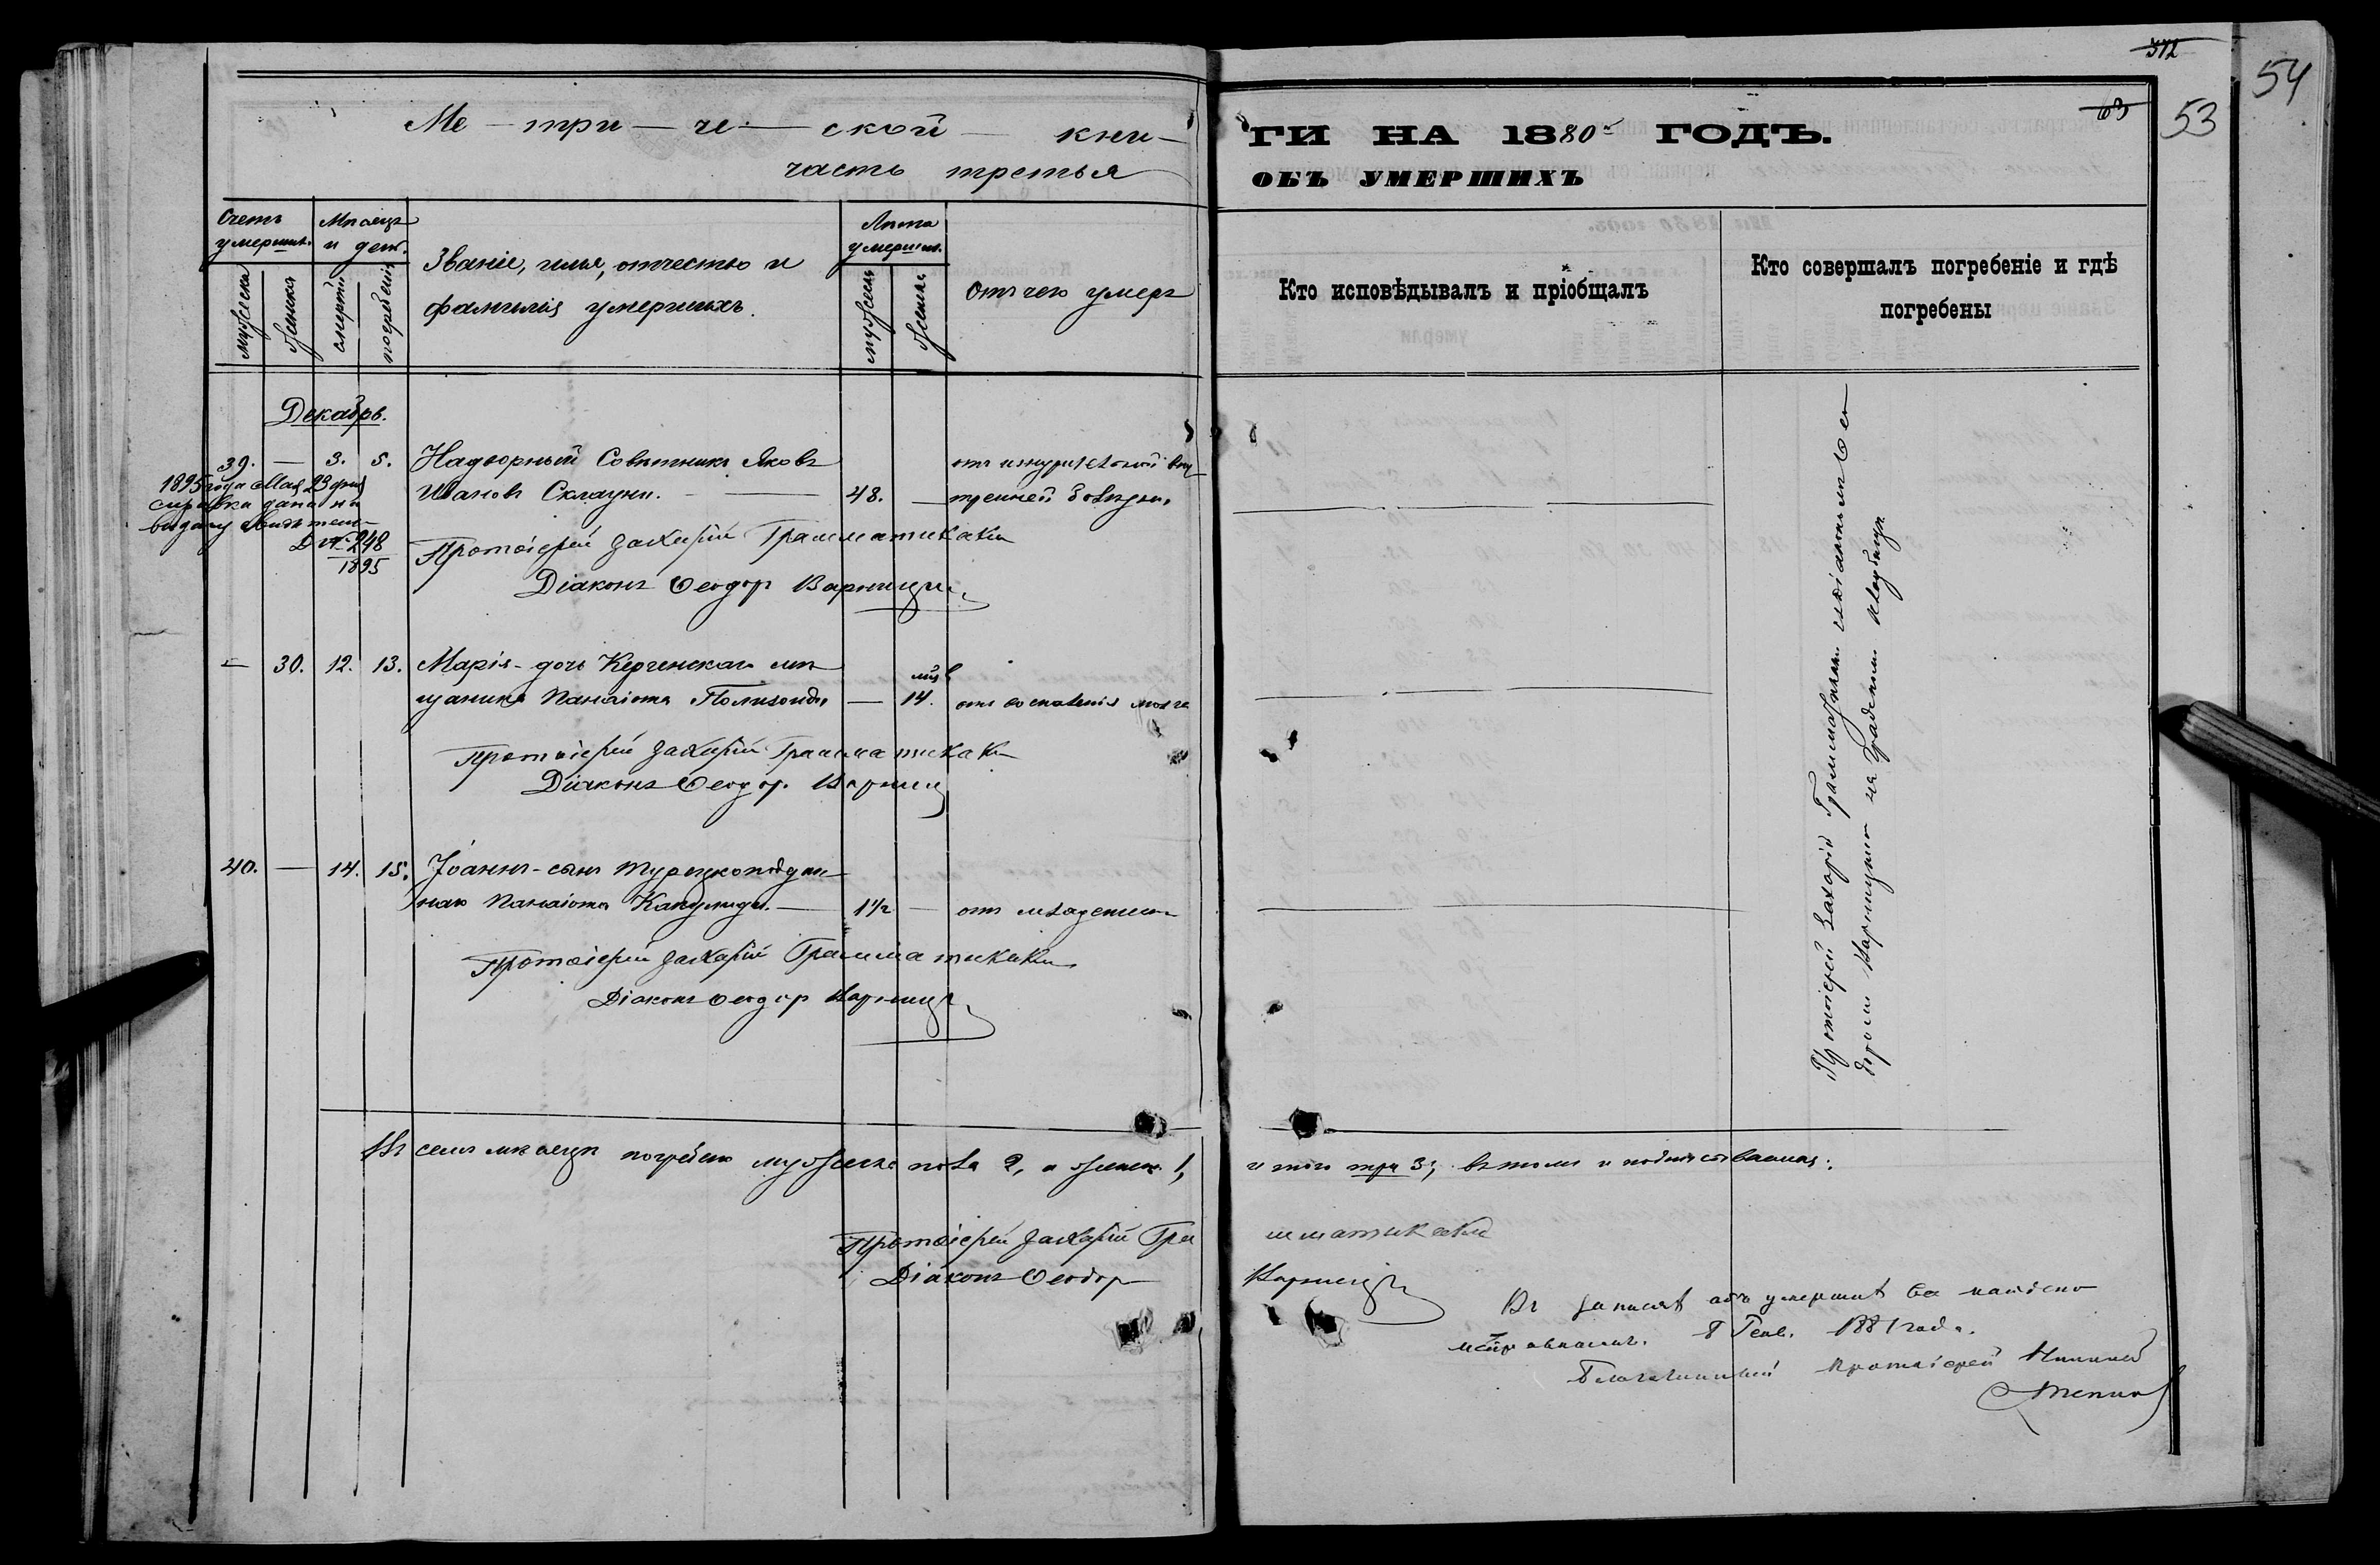 Ме — три — че — ской — кни —
часть третья
Счетъ умершихъ.
Мѣсяцъ и день.
Званіе, имя, отчество и
фамилія умершихъ.
Лѣта умершихъ.
Отъ чего умеръ
мужеска
женска
смерти
погребенія
мужеска
женска
Декабрь.
39. — 3. 5. Надворный Совѣтникъ Яковъ
Ивановъ Склауни. — 48. — тренней болѣзни.
1895 года Мая 23 дня
справка дана на
выдачу
Д № 248
1895
Протоіерей Захарій Грамматикаки
Діаконъ Ѳеодоръ Варници
— 30. 12. 13. Марія - дочь Керченскаго мѣ
щанина Панаіота Полизоиди — 14. отъ воспаленія мозга
Протоіерей Захарій Грамматикаки
Діаконъ Ѳеодоръ Варници
40. — 14. 15. Іоаннъ - сынъ Турецкоподдан
наго Панаіота — 1½ — отъ младенч.
Протоіерей Захарій Грамматикаки
Діаконъ Ѳеодоръ Варници
Въ семъ мѣсяцѣ погребено мужеска пола 2, а женска 1,
Протоіерей Захарій Гра
Діаконъ Ѳеодоръ
372
54
63
53
ГИ НА 1880й ГОДЪ.
ОБЪ УМЕРШИХЪ
Кто исповѣдывалъ и пріобщалъ
Кто совершалъ погребеніе и гдѣ
погребены
Протоіерей Захарій Грамматикаки съ діакономъ Ѳео
доромъ Варницию на Градскомъ кладбищѣ
итого три 3; въ томъ и подписываемся:
мматикаки
Варници
Въ записяхъ объ умершихъ все написано
исправно. 8 Генв. 1881 года.
Благочинный Протоіерей